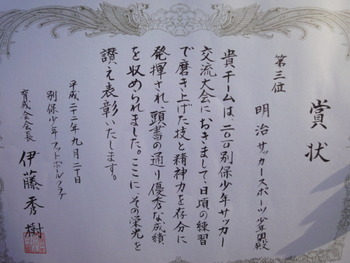 賞状
第三位
明治サッカースポーツ少年団殿
貴チームは、二〇一〇別保少年サッカー
交流大会におきまして、日頃の練習
で磨き上げた技と精神力を存分に
発揮され、頭書の通り優秀な成績
を収められました。ここに、その栄光を
讃え表彰いたします。
平成二十二年九月二十日
別保少年フットボールクラブ
育成会会長 伊藤秀樹